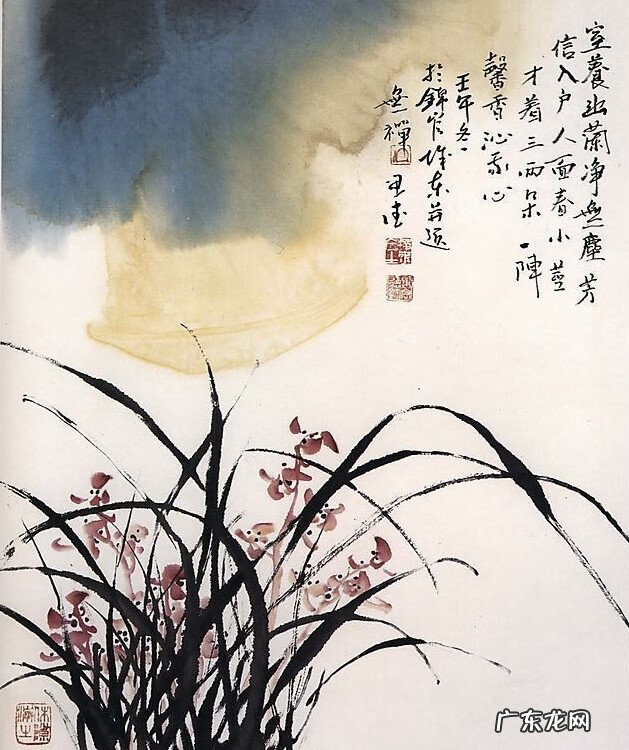 室養幽蘭净無塵芳
信入户人面春小莖
才着三兩朵一陣
馨香沁我心
壬午冬
於錦官城東
無禪
广东龙网